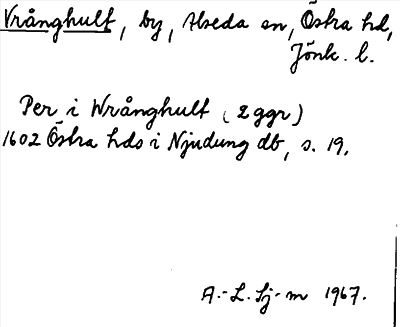 Vrånghult, by, Alseda sn, Östra hd,
Jönk. l.
Per i Wrånghult (2 ggr)
1602 Östra hds i Njudung db, s. 19.
A.-L. Sj-m 1967.